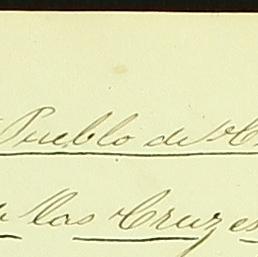 Pueblo de
las Cruzes